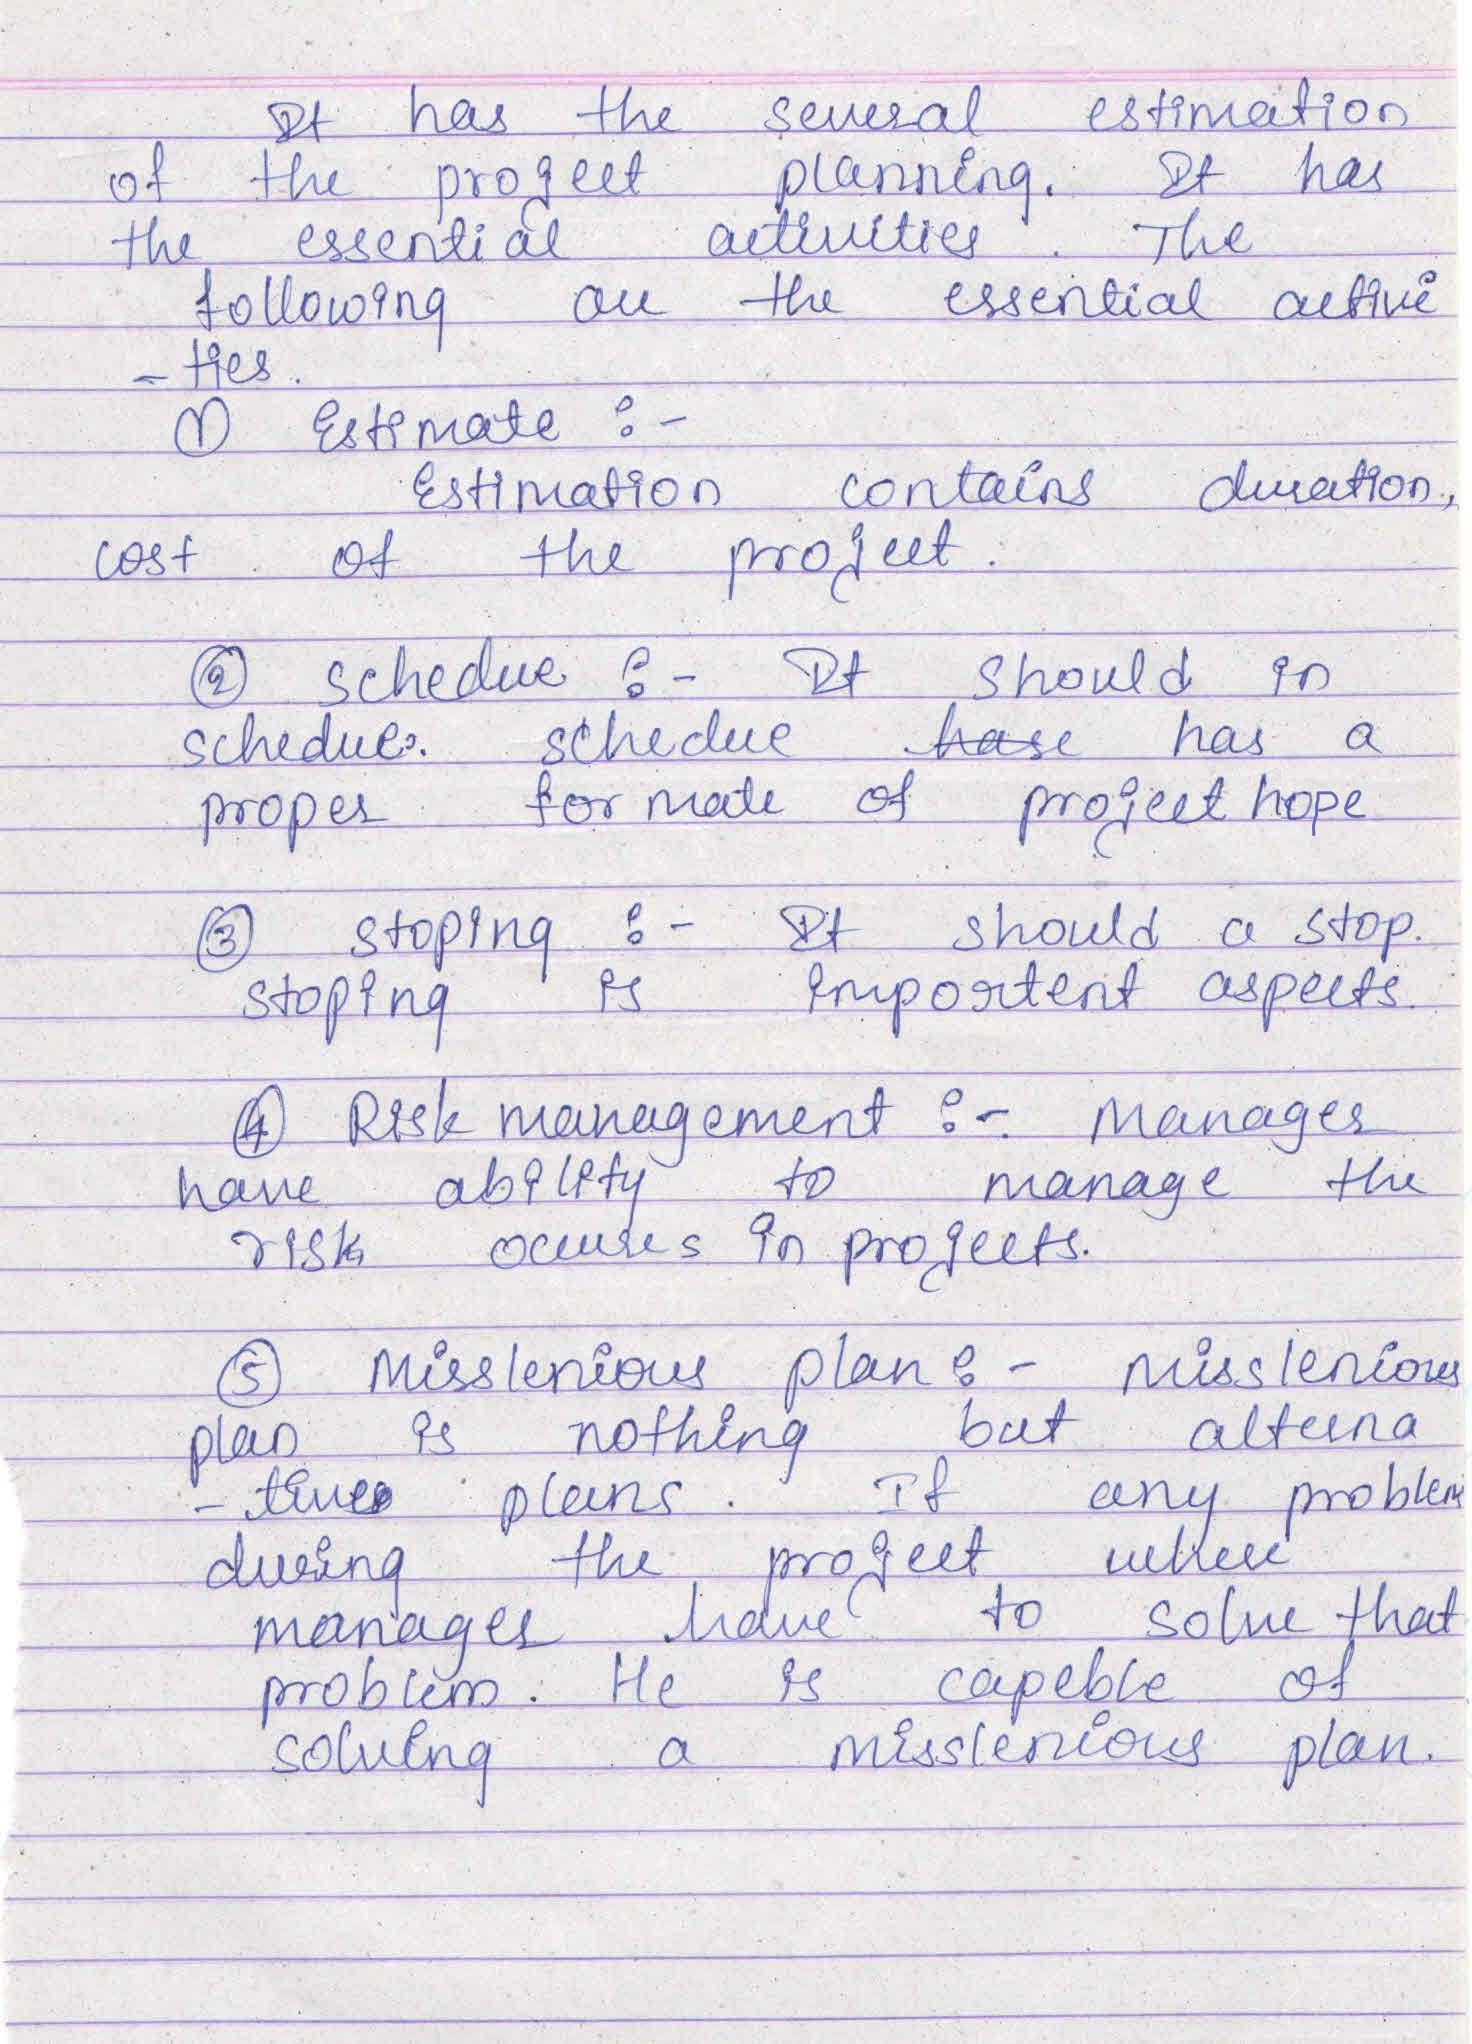 It has the several estimation
of the project planning. It has
the essential activities. The
following are the essential activi
- ties.
① Estimate :-
Estimation contains duration,
cost of the project.
② schedue :- It should in
schedue. schedue hase has a
proper formate of project hope
③ stoping :- It should a stop.
stoping is importent aspects.
④ Risk management :- Manager
have ability to manage the
risk occures in projects.
⑤ Misslenious plan :- misslenious
plan is nothing but alterna
- tive plans. If any problem
during the project where
manager have to solve that
problem. He is capeble of
solving a misslenious plan.